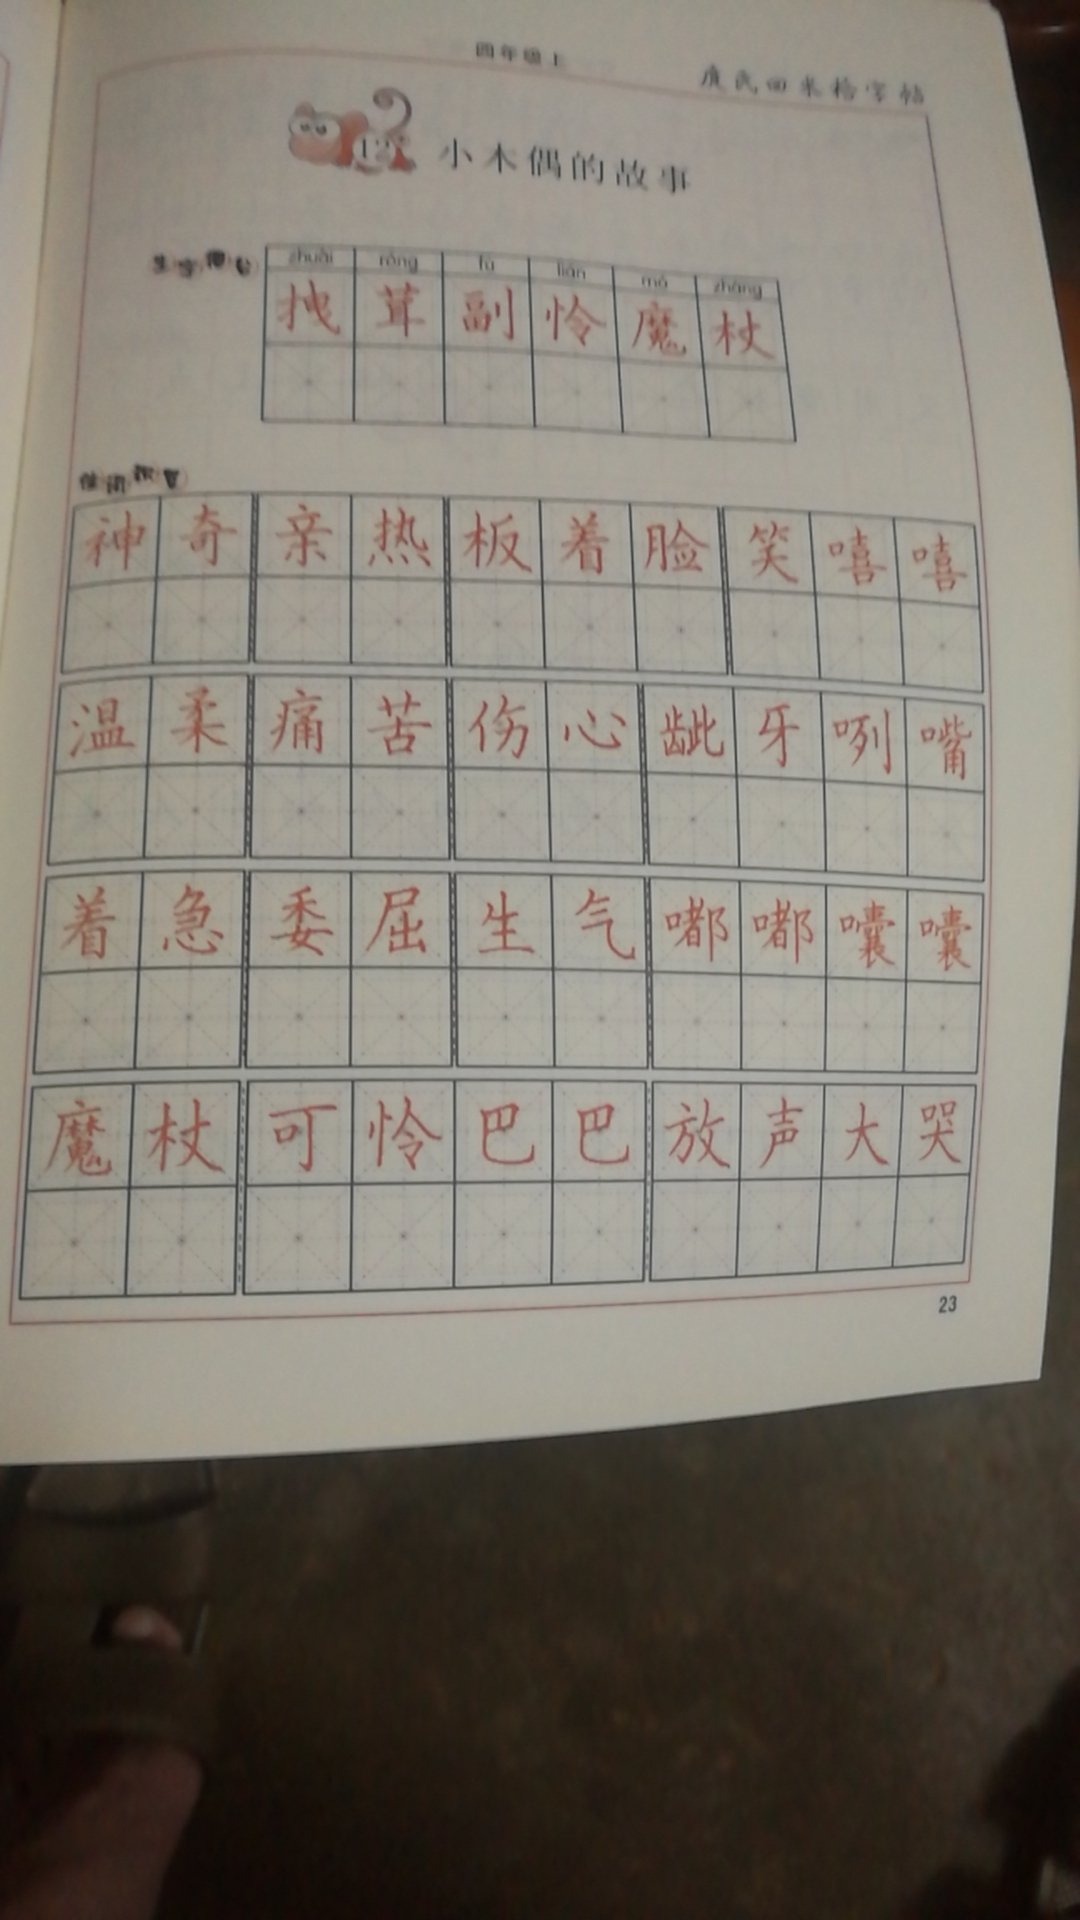 四年级上
庹氏回米格字帖
12 小木偶的故事
生字
zhuài róng fù lián mó zhàng
拽 茸 副 怜 魔 杖
佳词积累
神奇 亲热 板着脸 笑嘻嘻
温柔 痛苦 伤心 龇牙咧嘴
着急 委屈 生气 嘟嘟囔囔
魔杖 可怜巴巴 放声大哭
23